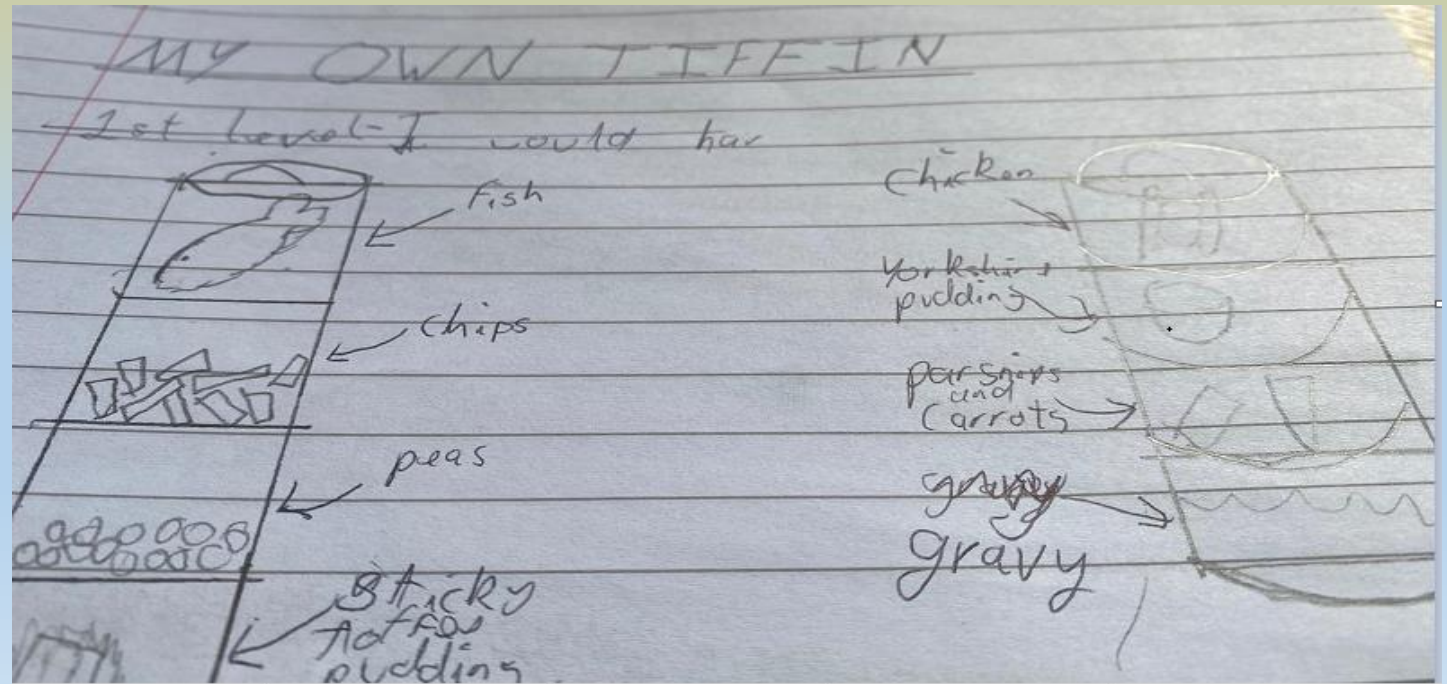 MY OWN TIFFIN
1st Level-I would hav
Fish
Chips
peas
Sticky
toffee
pudding
Chicken
Yorkshire
pudding
parsnips
and
Carrots
gravy
gravy